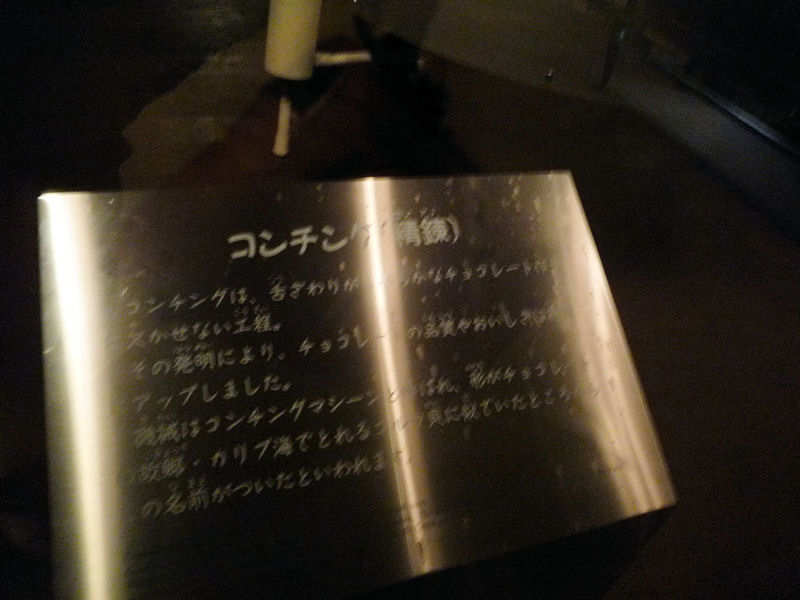 コンチング(精錬)
コンチングは、舌ざわりが なチョコレートに
欠かせない工程。
その発明により、チョコレートの品質やおいしさは
アップしました。
機械はコンチングマシーンとよばれ、形がチョコレート
の故郷・カリブ海でとれる 貝に似ていたところから
の名前がついたといわれます